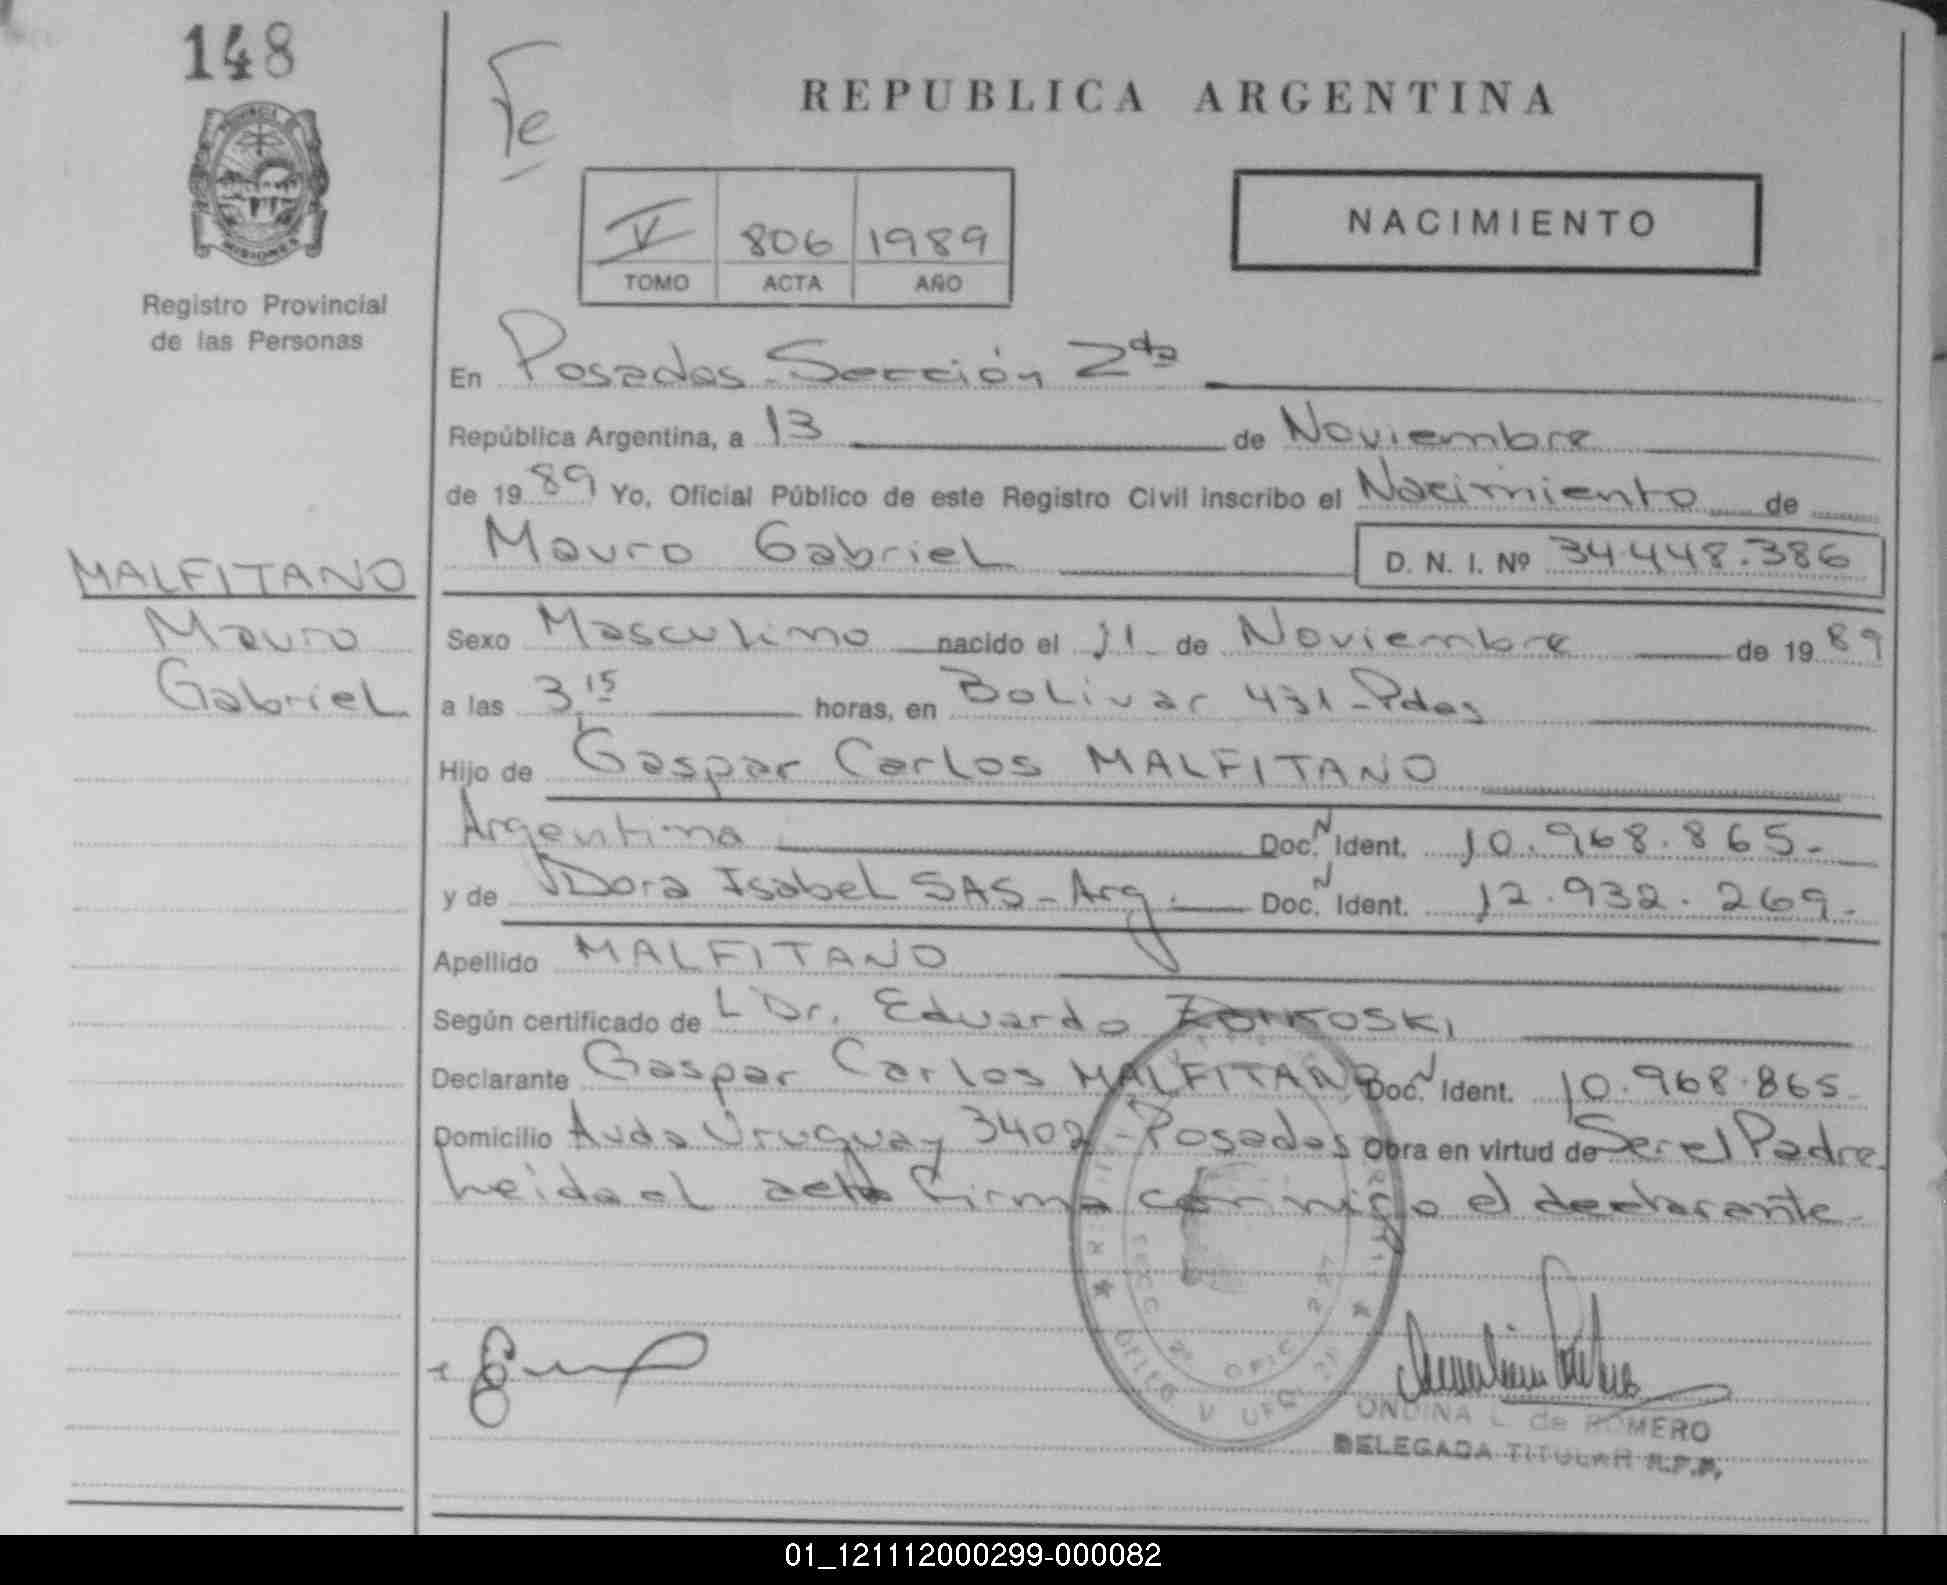 148
Fe
REPUBLICA ARGENTINA
PROVINCIA
MISIONES
Registro Provincial
de las Personas
V 806 1989
TOMO ACTA AÑO
NACIMIENTO
En Posadas - Sección 2da
República Argentina, a 13 de Noviembre
de 1989 Yo, Oficial Público de este Registro Civil inscribo el Nacimiento de
Mauro Gabriel D. N. I. Nº 34.448.386
MALFITANO
Mauro
Gabriel
Sexo Masculino nacido el 11 de Noviembre de 1989
a las 3,15 horas, en Bolivar 431 - Pdas
Hijo de Gaspar Carlos MALFITANO
Argentina Doc. N Ident. 10.968.865.-
y de Dora Isabel SAS - Arg. Doc. N Ident. 12.932.269.-
Apellido MALFITANO
Según certificado de L Dr. Eduardo
Declarante Gaspar Carlos MALFITANO Doc. N Ident. 10.968.865.
Domicilio Avda Uruguay 3402 - Posadas Obra en virtud de Ser el Padre.
Leida el acta firma conmigo el declarante.
ONDINA L. de ROMERO
DELEGADA TITULAR R.P.P.
01_121112000299-000082